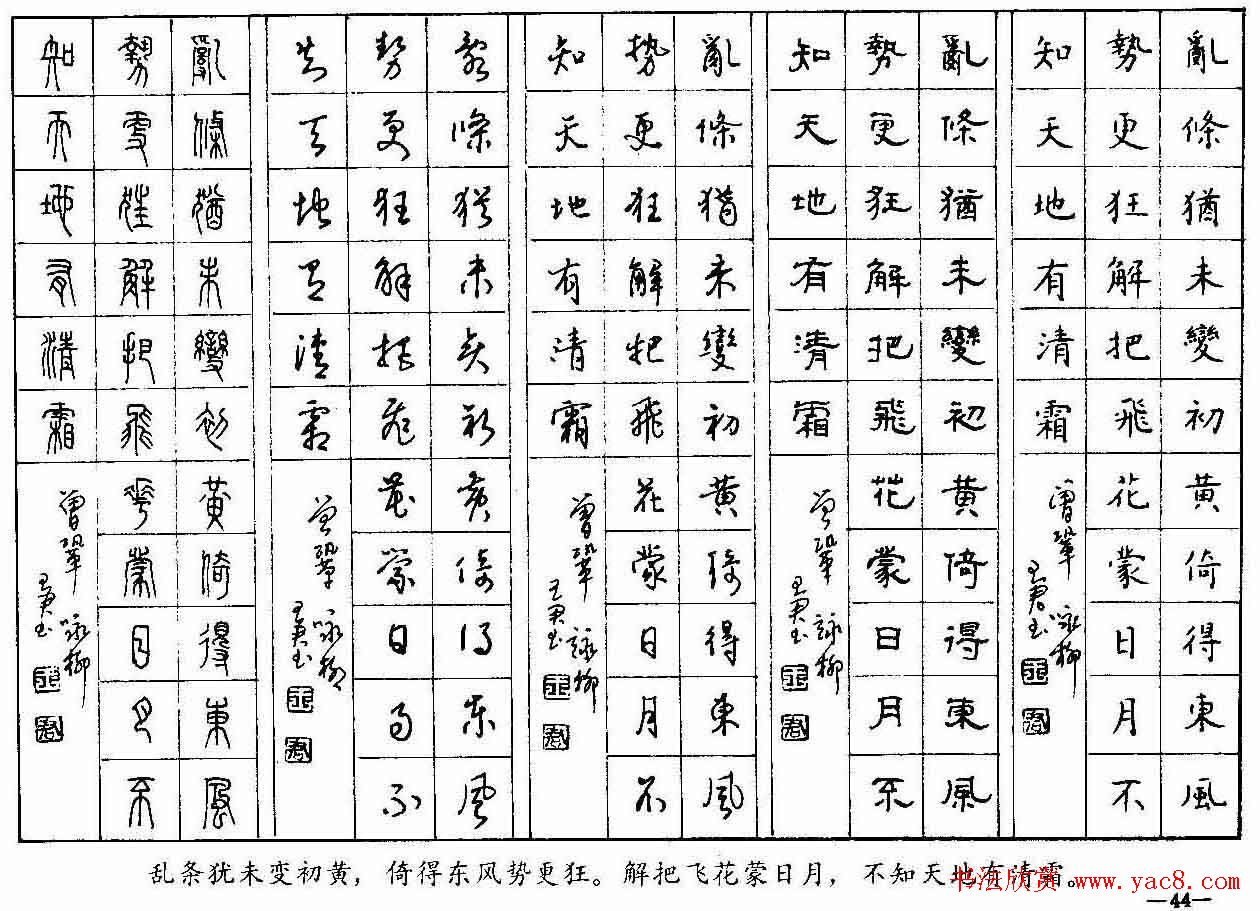 亂條猶未變初黃倚得東風
勢更狂解把飛花蒙日月不
知天地有清霜
曾鞏詠柳
王君書
亂條猶未變初黃倚得東風
勢更狂解把飛花蒙日月不
知天地有清霜
曾鞏詠柳
王君書
亂條猶未變初黃倚得東風
勢更狂解把飛花蒙日月不
知天地有清霜
曾鞏詠柳
王君書
亂條猶未變初黃倚得東風
勢更狂解把飛花蒙日月不
知天地有清霜
曾鞏詠柳
王君書
亂條猶未變初黃倚得東風
勢更狂解把飛花蒙日月不
知天地有清霜
曾鞏詠柳
王君書
乱条犹未变初黄，倚得东风势更狂。解把飞花蒙日月，不知天地有清霜。
书法欣赏 www.yac8.com
—44—